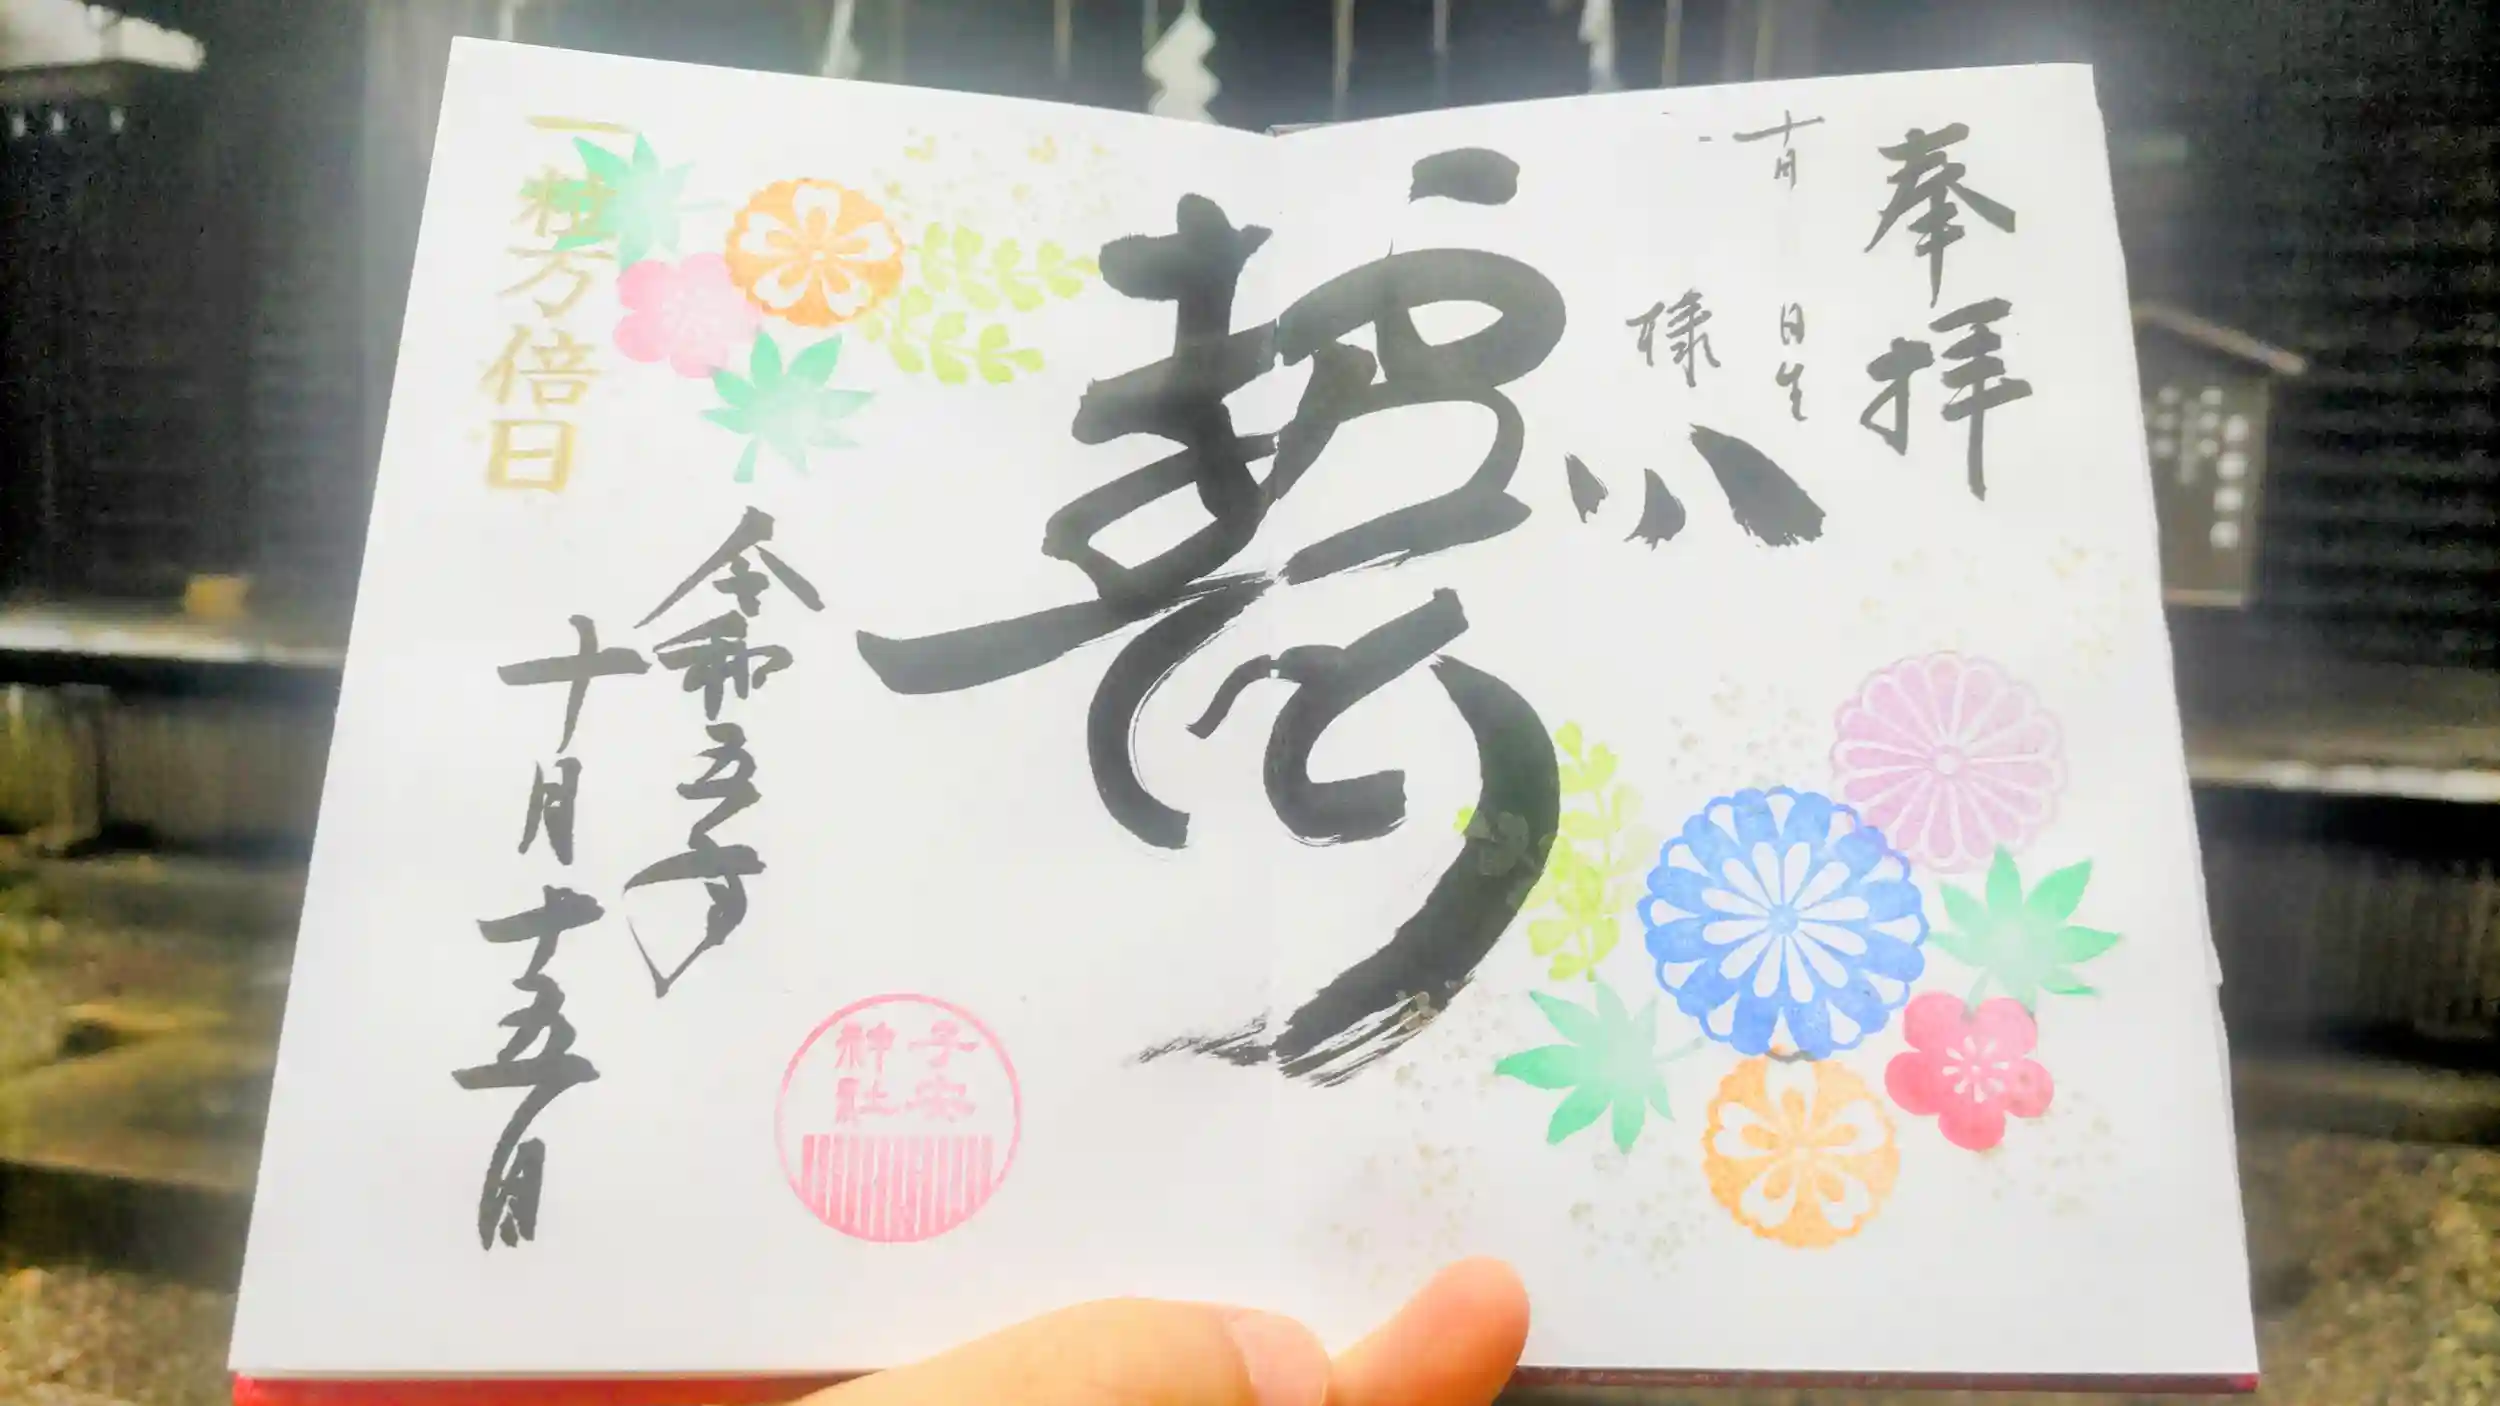 奉拝
十月 日生
様
令和五年
十月十五日
一粒万倍日
子安
神社